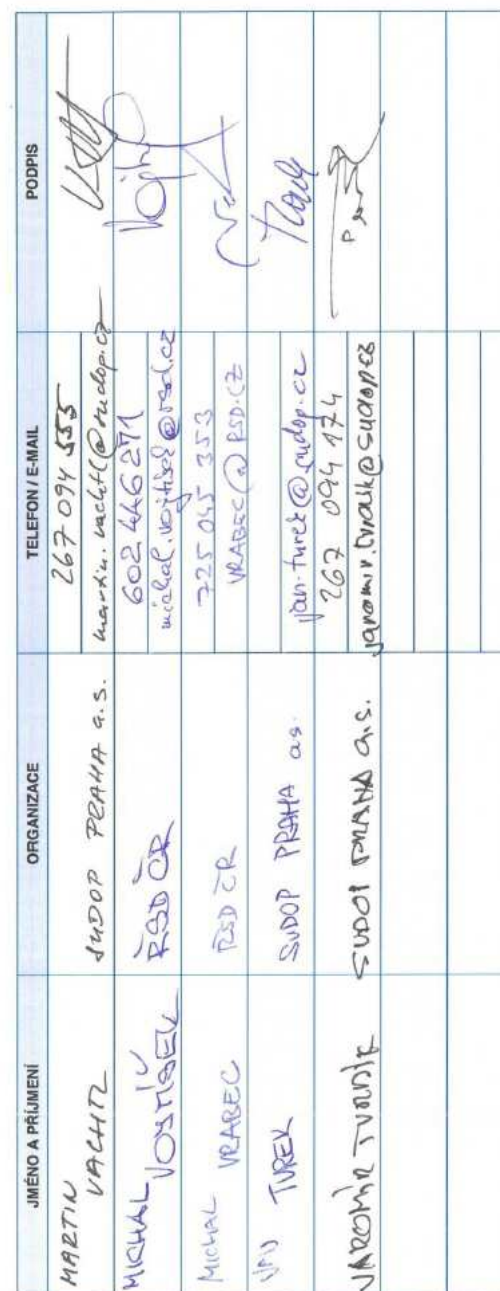 JMÉNO A PŘÍJMENÍ ORGANIZACE TELEFON / E-MAIL PODPIS
MARTIN VACHTL SUDOP PRAHA a.s. 267 094 555
martin.vachtl@sudop.cz
MICHAL VOJTÍŠEK ŘSD ČR 602 446 271
michal.vojtisek@rsd.cz
MICHAL VRABEC ŘSD ČR 725 045 353
VRABEC@RSD.CZ
JAN TUREK SUDOP PRAHA a.s.
jan.turek@sudop.cz
JAROMÍR TVRDÍK SUDOP PRAHA a.s. 267 094 174